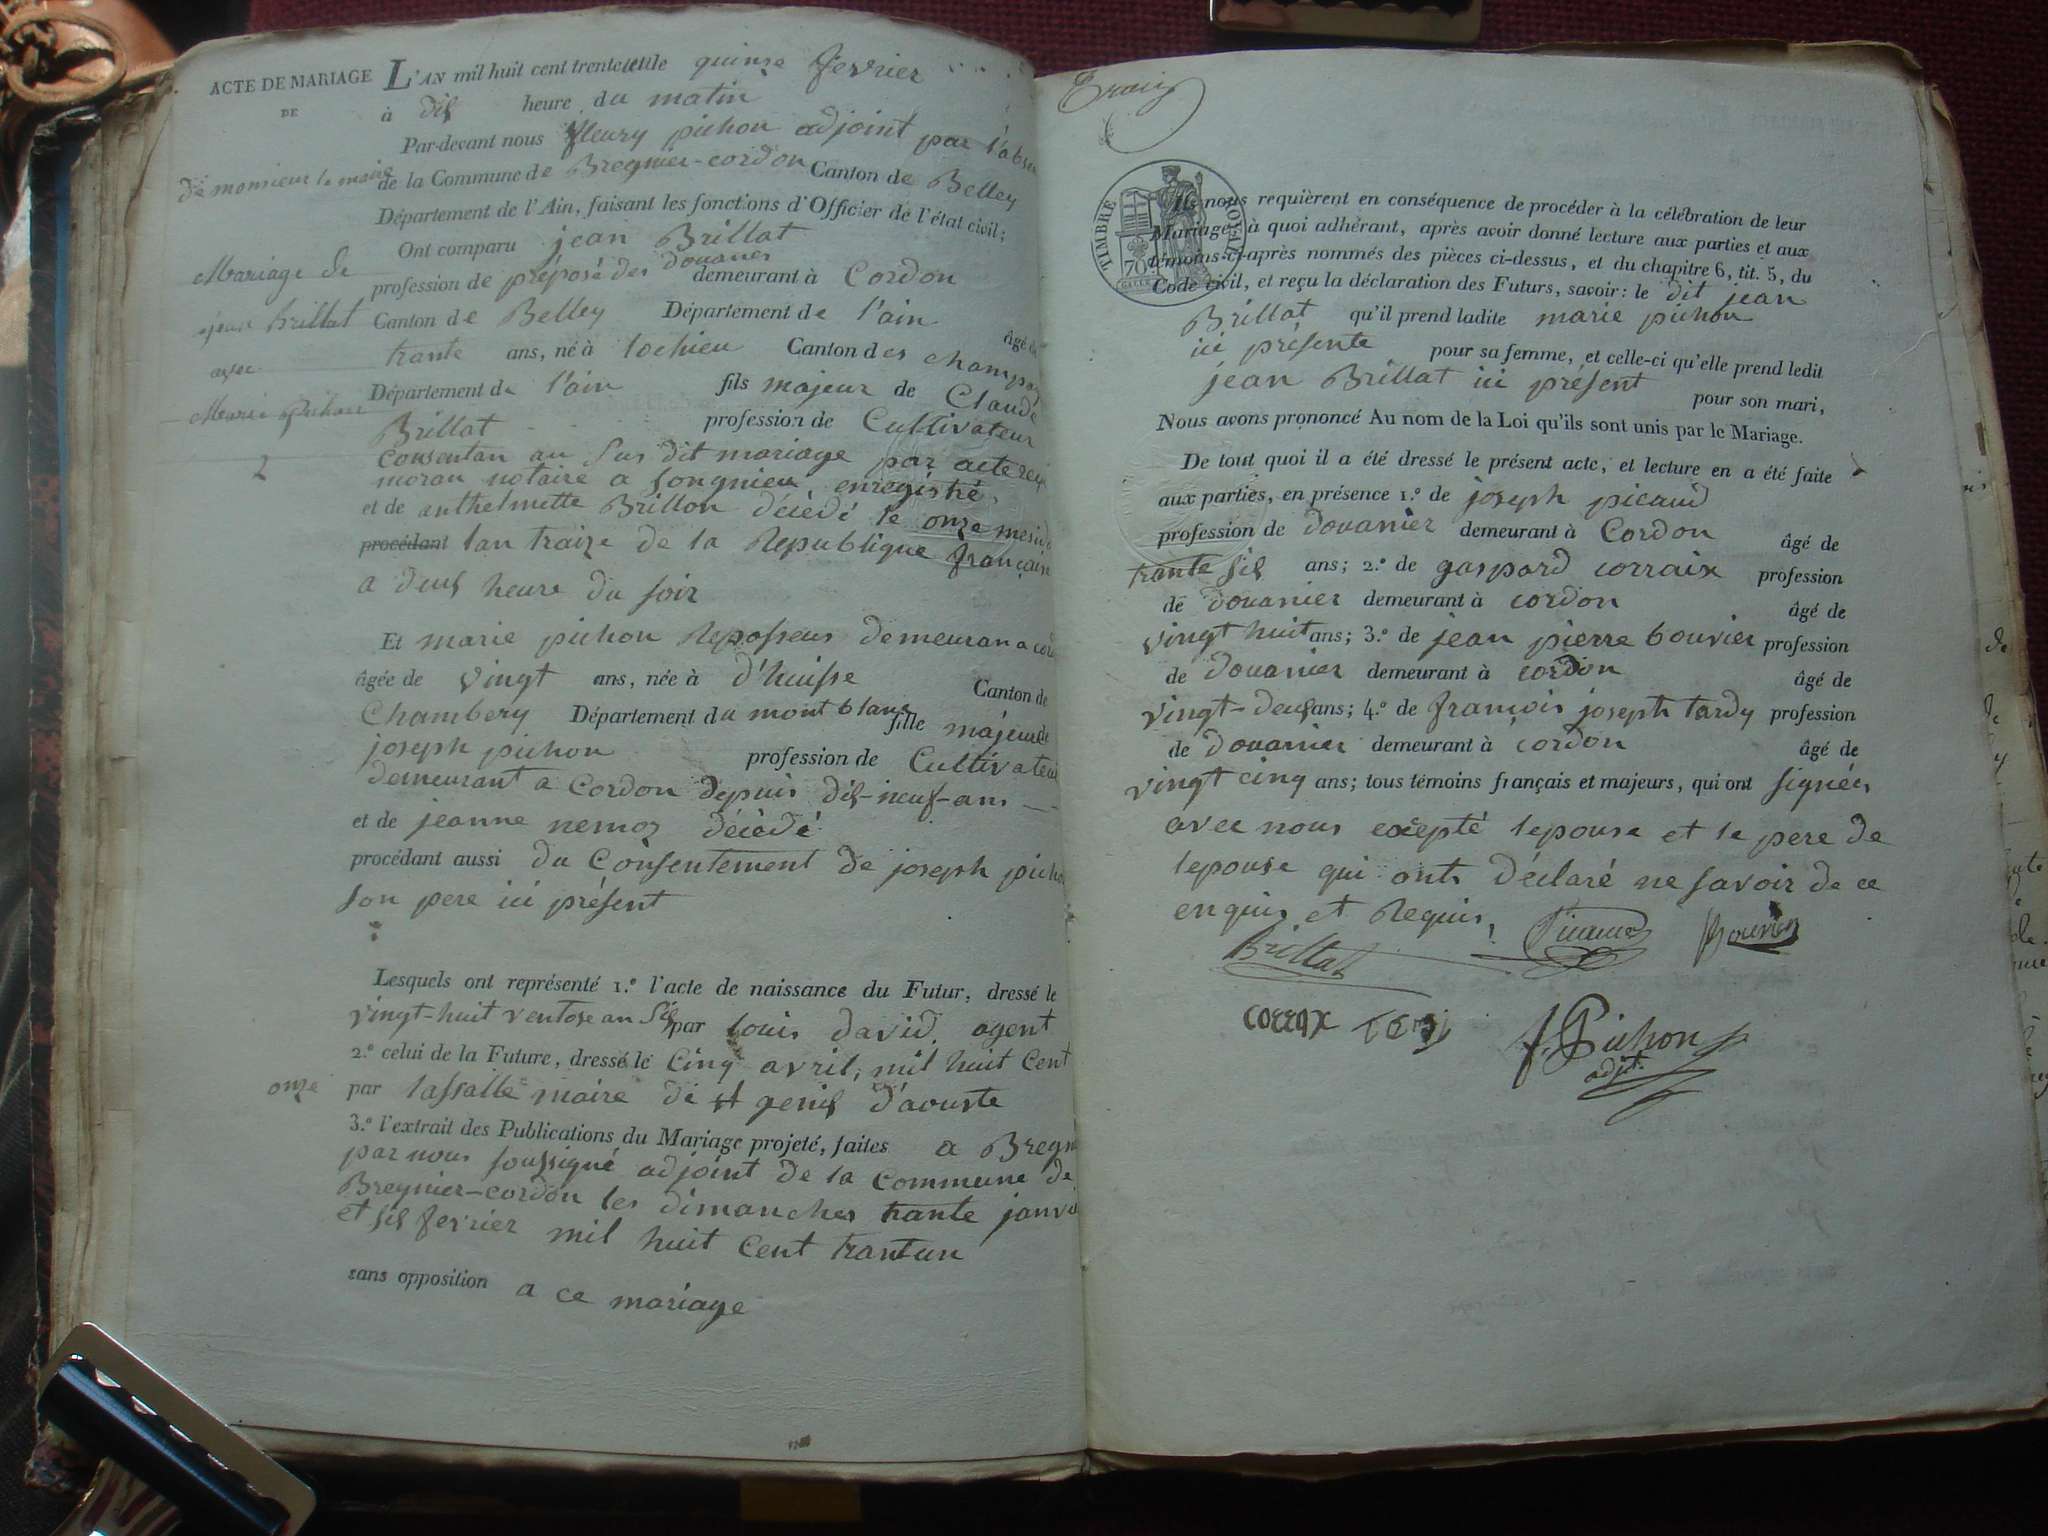 ACTE DE MARIAGE
DE
L'AN mil huit cent trente et un le quinse fevrier
à dis heure du matin
Par-devant nous fleury pichon adjoint par l'absen
de monsieur le maire de la Commune de Bregnier-cordon Canton de Belley
Département de l'Ain, faisant les fonctions d'Officier de l'état civil;
Ont comparu jean Brillat
profession de préposé des douanes demeurant à Cordon
Canton de Belley Département de l'ain âgé de
trante ans, né à lochieu Canton des champag
Département de l'ain fils majeur de Claude
Brillat profession de Cultivateur
Consentan au sus dit mariage par acte reçu
moran notaire a songnieu enregistré
et de anthelmette Brillon décédé le onze mesid
procédant lan traize de la Republique françaire
a deus heure du soir
Mariage de
jean brillat
avec
Marie pichon
2
Et marie pichon Reposseus demeuran a cord
âgée de vingt ans, née à d'huisse Canton de
Chambery Département du mont blanc fille majeure de
joseph pichon profession de Cultivateur
demeurant a Cordon depuis dis-neuf-ans
et de jeanne nemoz décédé
procédant aussi du Consentement de joseph picho
son pere ici présent
Lesquels ont représenté 1.º l'acte de naissance du Futur, dressé le
vingt-huit ventose an sis par louis david agent
2.º celui de la Future, dressé le Cinq avril, mil huit Cent
onze par lassalle maire de st genis d'aouste
3.º l'extrait des Publications du Mariage projeté, faites a Bregn
par nous soussigné adjoint de la Commune de
Bregnier-cordon les dimanches trante janvie
et sis fevrier mil huit Cent trantun
sans opposition a ce mariage
TIMBRE ROYAL
70
Ils nous requièrent en conséquence de procéder à la célébration de leur
Mariage, à quoi adhérant, après avoir donné lecture aux parties et aux
témoins ci-après nommés des pièces ci-dessus, et du chapitre 6, tit. 5, du
Code civil, et reçu la déclaration des Futurs, savoir: le dit jean
Brillat qu'il prend ladite marie pichon
ici présente pour sa femme, et celle-ci qu'elle prend ledit
jean Brillat ici présent pour son mari,
Nous avons prononcé Au nom de la Loi qu'ils sont unis par le Mariage.
De tout quoi il a été dressé le présent acte, et lecture en a été faite
aux parties, en présence 1.º de joseph picaud
profession de douanier demeurant à Cordon âgé de
trante sis ans; 2.º de gaspard corraix profession
de douanier demeurant à cordon âgé de
vingt huit ans; 3.º de jean pierre bouvier profession
de douanier demeurant à cordon âgé de
vingt-deus ans; 4.º de françois joseph tardy profession
de douanier demeurant à cordon âgé de
vingt cinq ans; tous témoins français et majeurs, qui ont signés
avec nous excepté lepouse et le pere de
lepouse qui onts déclaré ne savoir de ce
enquis et Requis,
Brillat Picaud Bouvier
correx
f. Pichon
adjt.